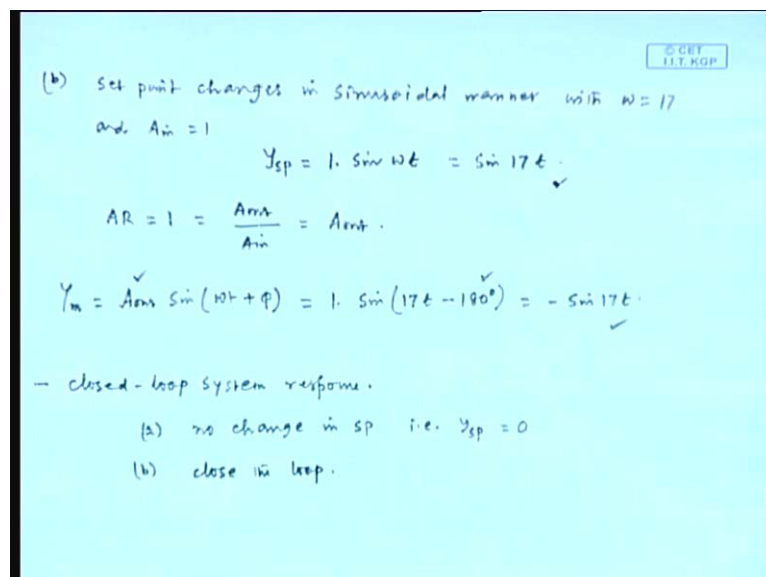 © CET
I.I.T. KGP
(b) Set point changes in sinusoidal manner with w = 17
and Ain = 1
Ysp = 1. Sin wt = Sin 17t.
AR = 1 = Aout / Ain = Aout.
Ym = Aout Sin (wt + φ) = 1. Sin (17t - 180°) = - Sin 17t.
- closed-loop system response.
(a) no change in SP i.e. Ysp = 0
(b) close the loop.